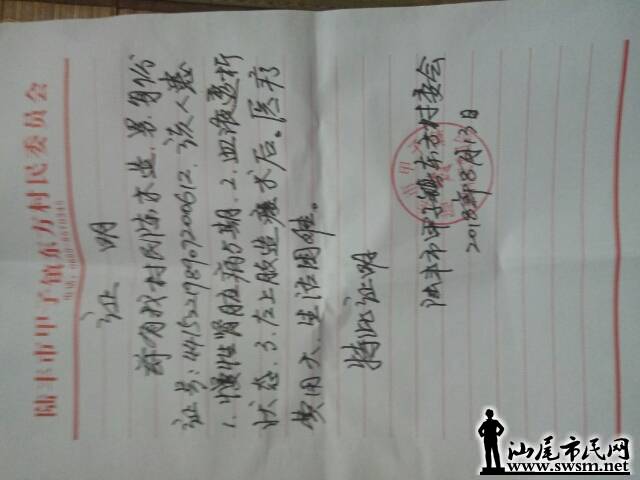 陆丰市甲子镇东方村民委员会
证 明
兹有我村民陈木业,男,身份
证号:441522198907200612,该人患
1.慢性肾脏病5期.2.血液透析
状态.3.左上肢造瘘术后。医疗
费用大、生活困难。
特此证明
陆丰市甲子镇东方村委会
2018年8月13日
汕尾市民网
www.swsm.net